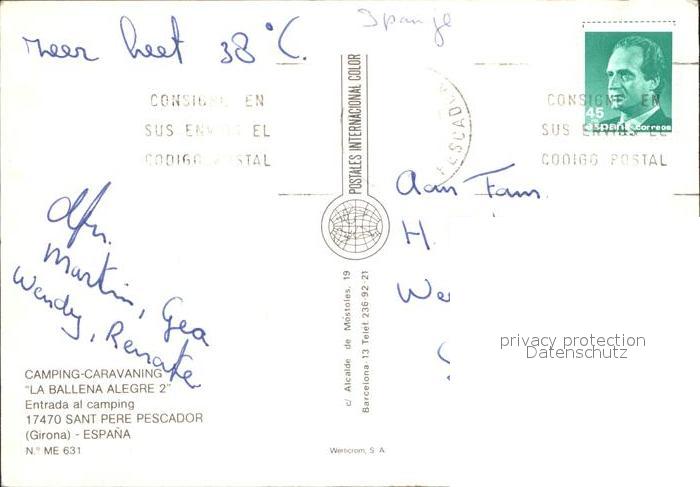 Spanje
zeer heet 38°C.
CONSIGNE EN
SUS ENVIOS EL
CODIGO POSTAL
CONSIGNE EN
SUS ENVIOS EL
CODIGO POSTAL
45
españa correos
PESCADOR
POSTALES INTERNACIONAL COLOR
Aan Fam.
H.
We
Afn.
Martin, Gea
Wendy, Renate
privacy protection
Datenschutz
c/ Alcalde de Móstoles, 19
Barcelona-13 Telef. 236-92-21
CAMPING-CARAVANING
"LA BALLENA ALEGRE 2"
Entrada al camping
17470 SANT PERE PESCADOR
(Girona) - ESPAÑA
N.º ME 631
Wericrom, S. A.